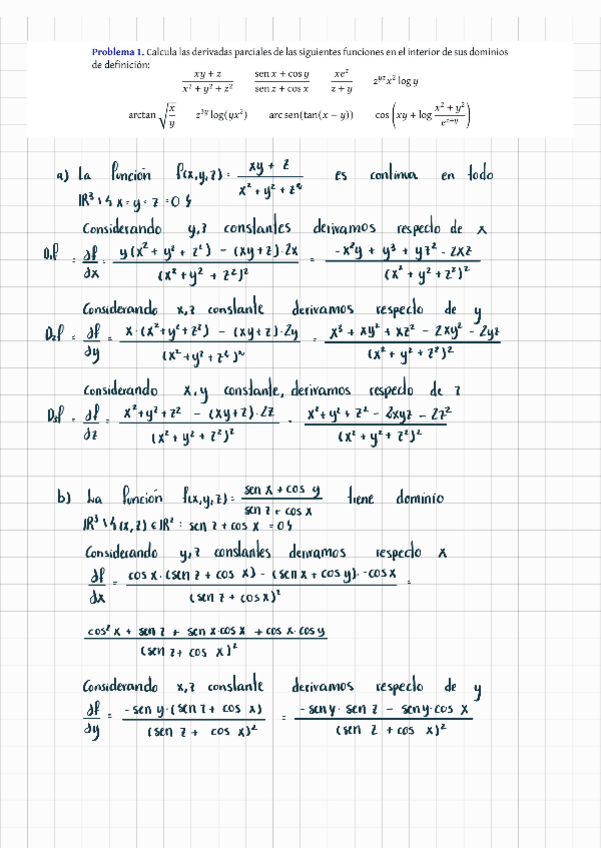 Problema 1. Calcula las derivadas parciales de las siguientes funciones en el interior de sus dominios
de definición:
(xy + z)/(x² + y² + z²)   (sen x + cos y)/(sen z + cos x)   xe^z/(z + y)   z^{yz} x² log y
arctan √(x/y)   z^{3y} log(yx²)   arc sen(tan(x − y))   cos(xy + log (x² + y²)/e^{z+y})
a) La función f(x,y,z) = (xy + z)/(x² + y² + z²) es continua en todo
IR³ \ { x = y = z = 0 }
Considerando y,z constantes derivamos respecto de x
D₁f = df/dx = (y(x² + y² + z²) − (xy+z)·2x)/(x² + y² + z²)² = (−x²y + y³ + yz² − 2xz)/(x² + y² + z²)²
Considerando x,z constante derivamos respecto de y
D₂f = df/dy = (x·(x²+y²+z²) − (xy+z)·2y)/(x²+y²+z²)² = (x³ + xy² + xz² − 2xy² − 2yz)/(x² + y² + z²)²
Considerando x,y constante, derivamos respecto de z
D₃f = df/dz = (x²+y²+z² − (xy+z)·2z)/(x² + y² + z²)² = (x²+y²+z² − 2xyz − 2z²)/(x² + y² + z²)²
b) La función f(x,y,z) = (sen x + cos y)/(sen z + cos x) tiene dominio
IR³ \ {(x,z) ∈ IR² : sen z + cos x = 0}
Considerando y,z constantes derivamos respecto x
df/dx = (cos x·(sen z + cos x) − (sen x + cos y)·−cos x)/(sen z + cos x)² =
(cos² x + sen z + sen x·cos x + cos x·cos y)/(sen z + cos x)²
Considerando x,z constante derivamos respecto de y
df/dy = (−sen y·(sen z + cos x))/(sen z + cos x)² = (−sen y·sen z − sen y·cos x)/(sen z + cos x)²